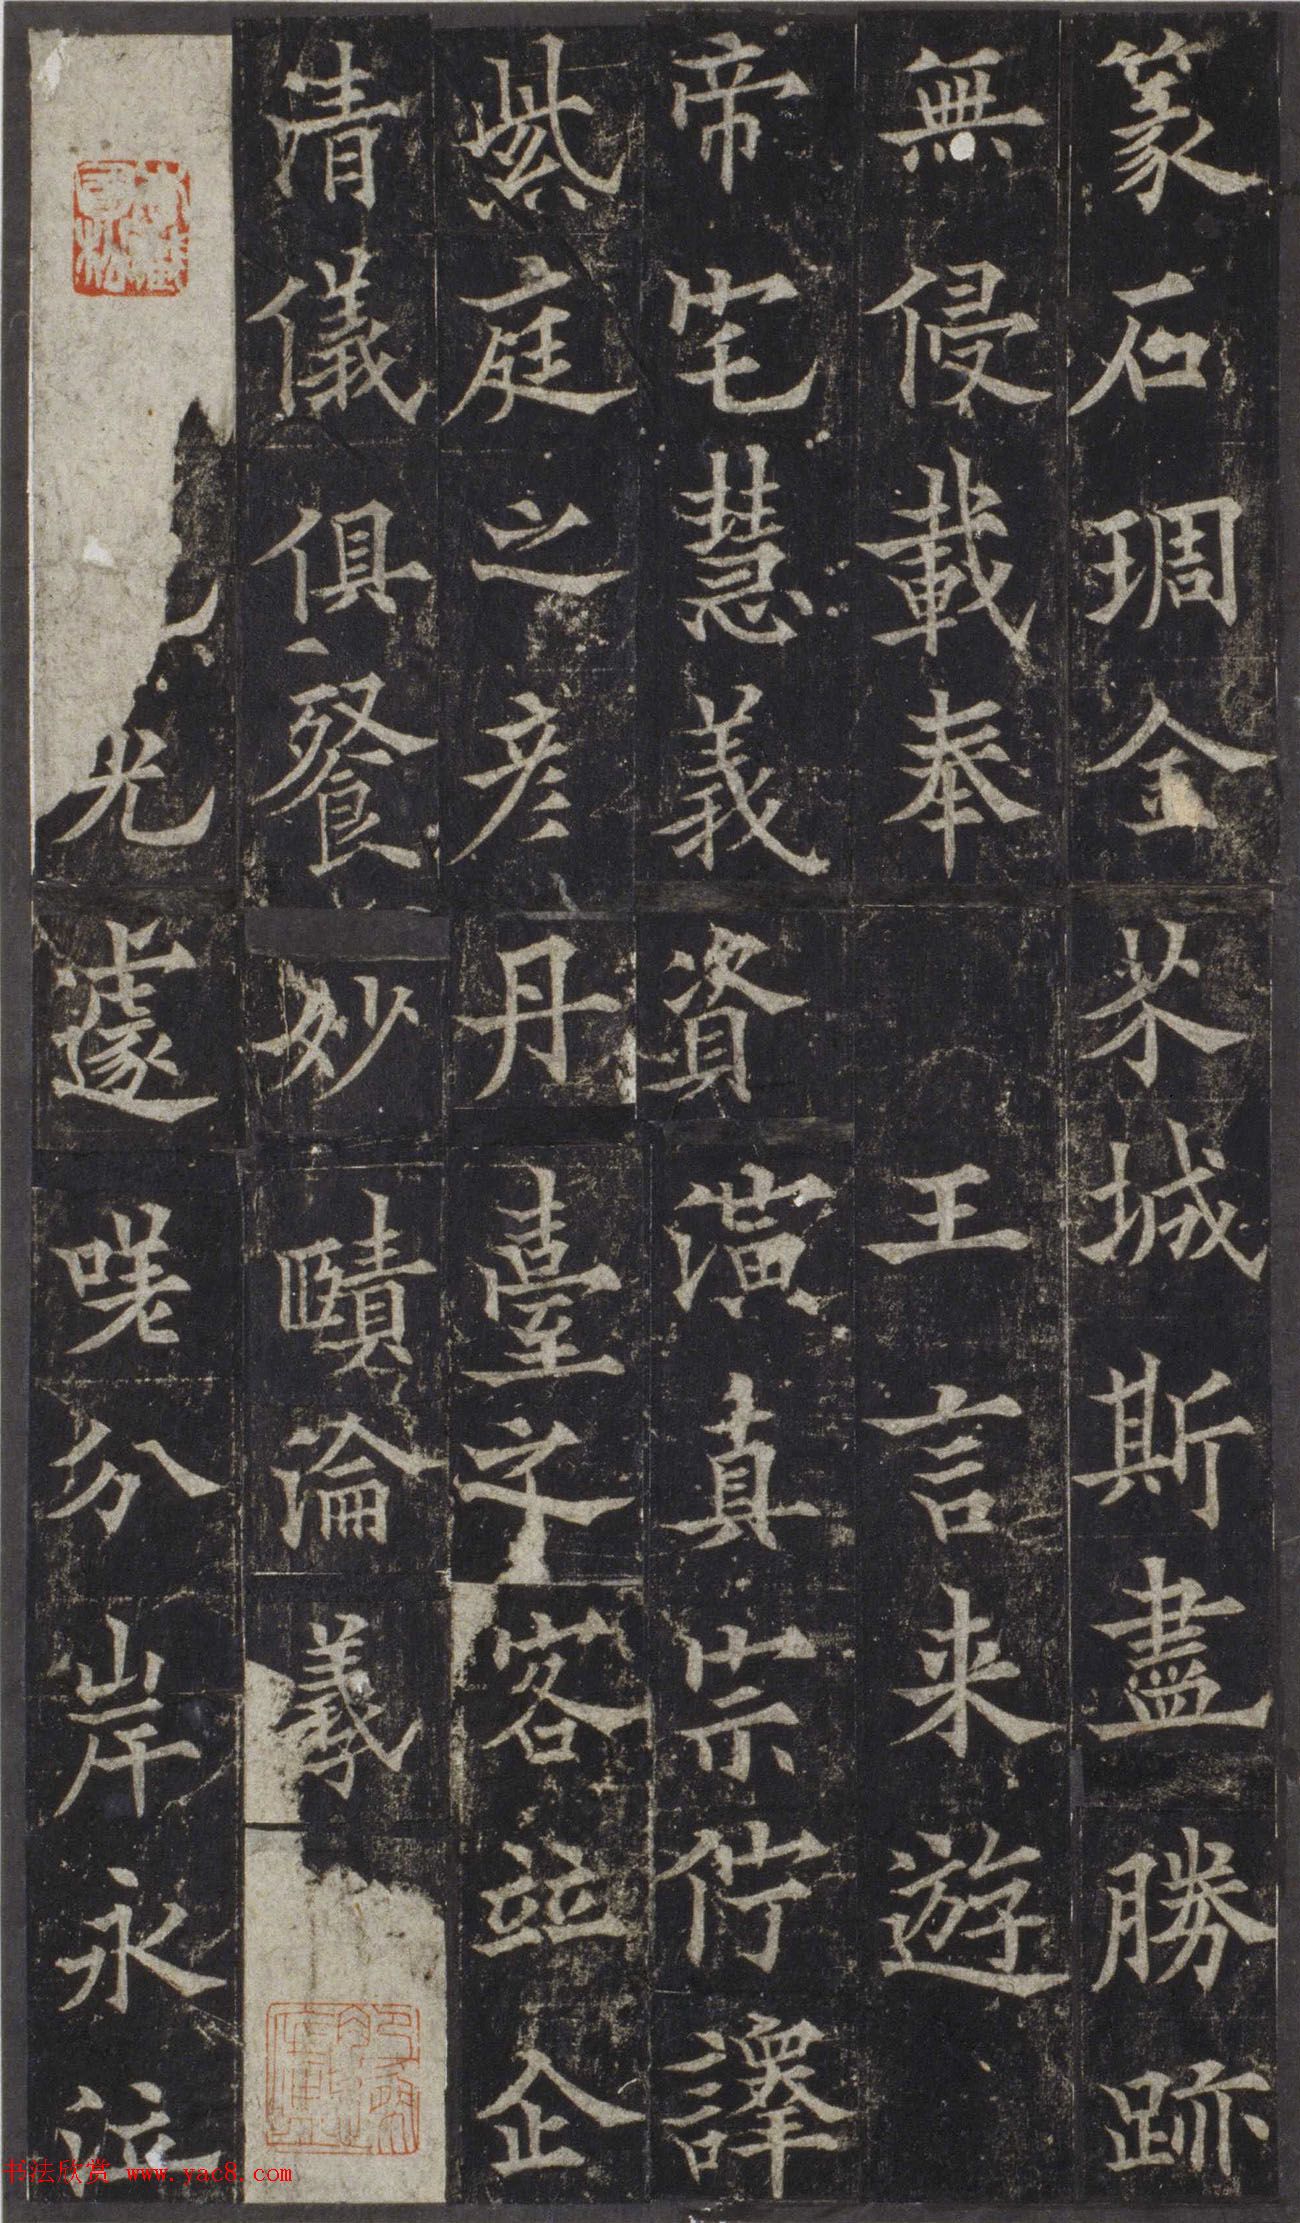 篆石琱金芥城斯盡勝跡
無侵載奉王言来遊
帝宅慧義資演真宗佇譯
紫庭之彦丹臺之客並企
清儀俱餐妙賾淪義
光遽咲分岸永
书法欣赏 www.yac8.com